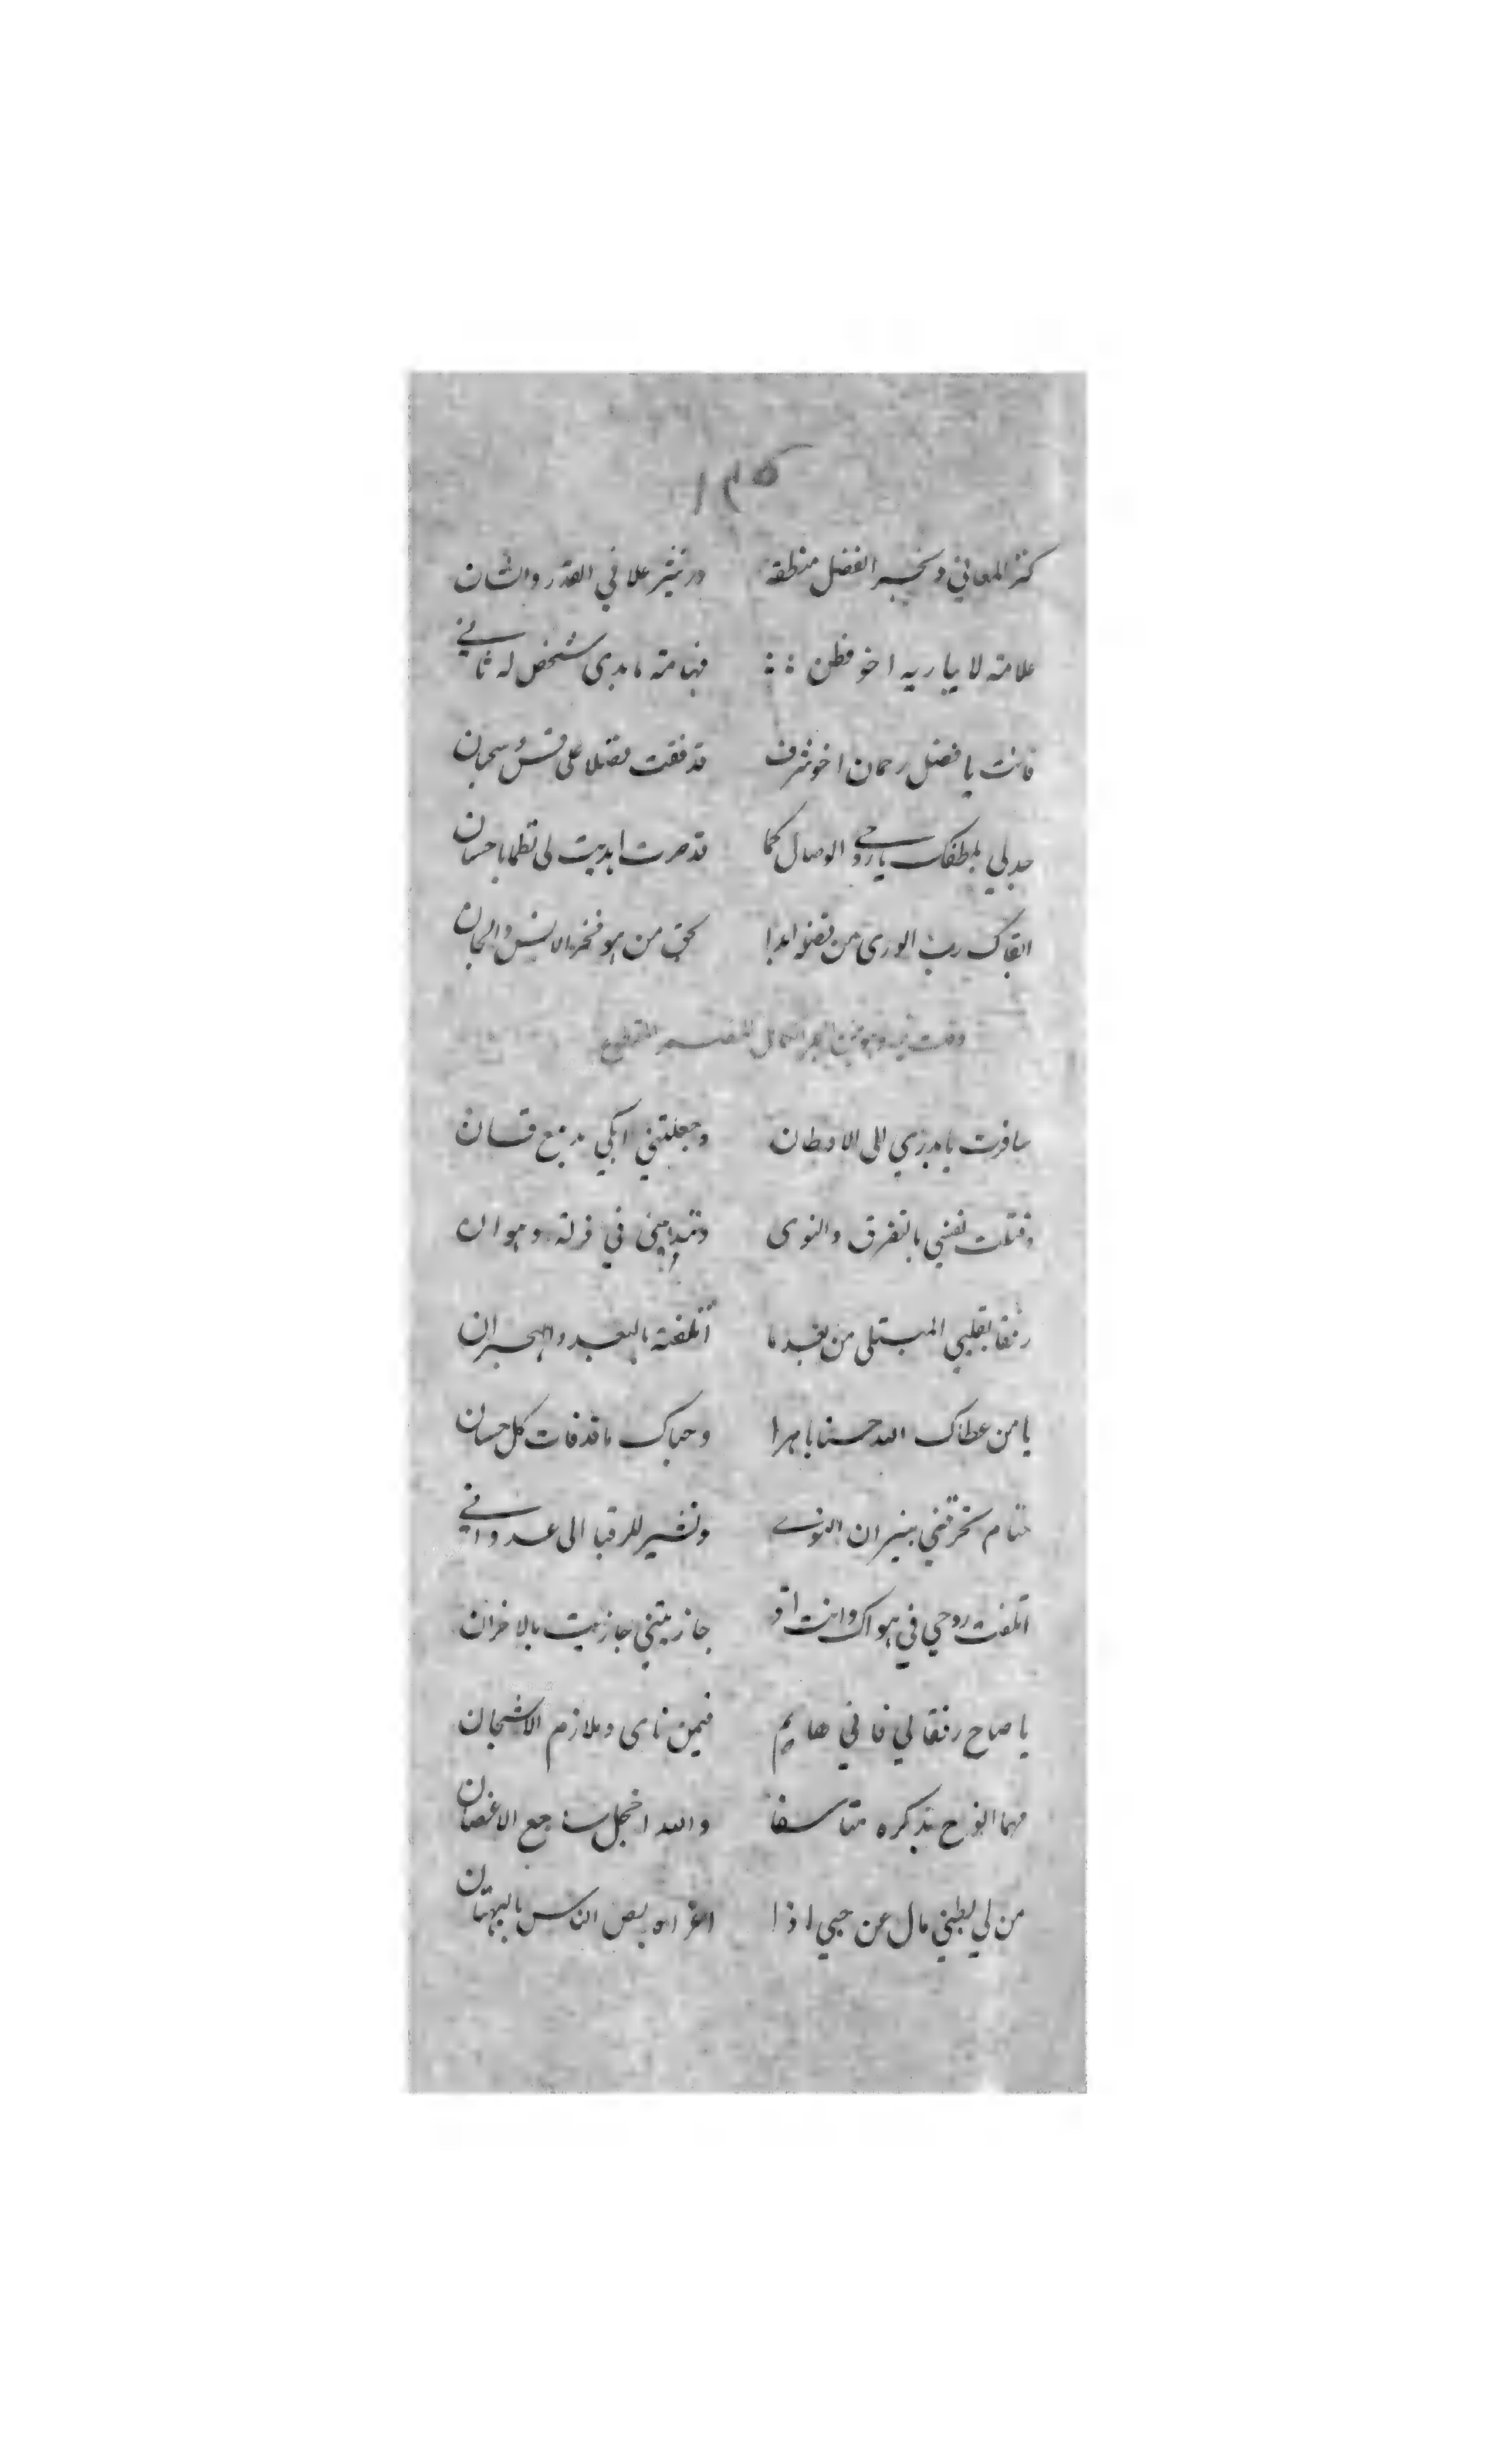 ١٣٥
كنز المعاني وبحر الفضل منطقه ودر نثر علا في القدر والشان
علامة لا يباريه اخو فطن فهامة ما بدى شخص له ثاني
فانت يا فضل رحمان اخو شرف قد فقت فضلا على قس وسحبان
جد لي بلطفك يا روحي الوصال كما قد صرت ابديت لي نظما باحسان
ابقاك رب الورى من فضله ابدا بحق من هو فخر الانس والجان
وقلت فيه وهو من البحر الكامل المقطوع
سافرت يا بدري الى الاوطان وجعلتني ابكي بدمع قان
وقتلت نفسي بالتفرق والنوى في ذلة وهوان
رفقا بقلبي المبتلى من بعد ما أتلفته بالبعد والهجران
يا من عطاك الله حسنا باهرا وحباك ما قد فات كل حسان
حتام تحرقني بنيران النوى وتشير للرقبا الى عدواني
اتلفت روحي في هواك وانت اذ جازيتني جازيت بالاحزان
يا صاح رفقا لي فاني هايم فيمن ناى وملازم الاشجان
مهما انوح بذكره متاسفا والله اخجل ساجع الاغصان
من لي بظبي مال عن حبي اذا اغراه بعض الناس بالبهتان